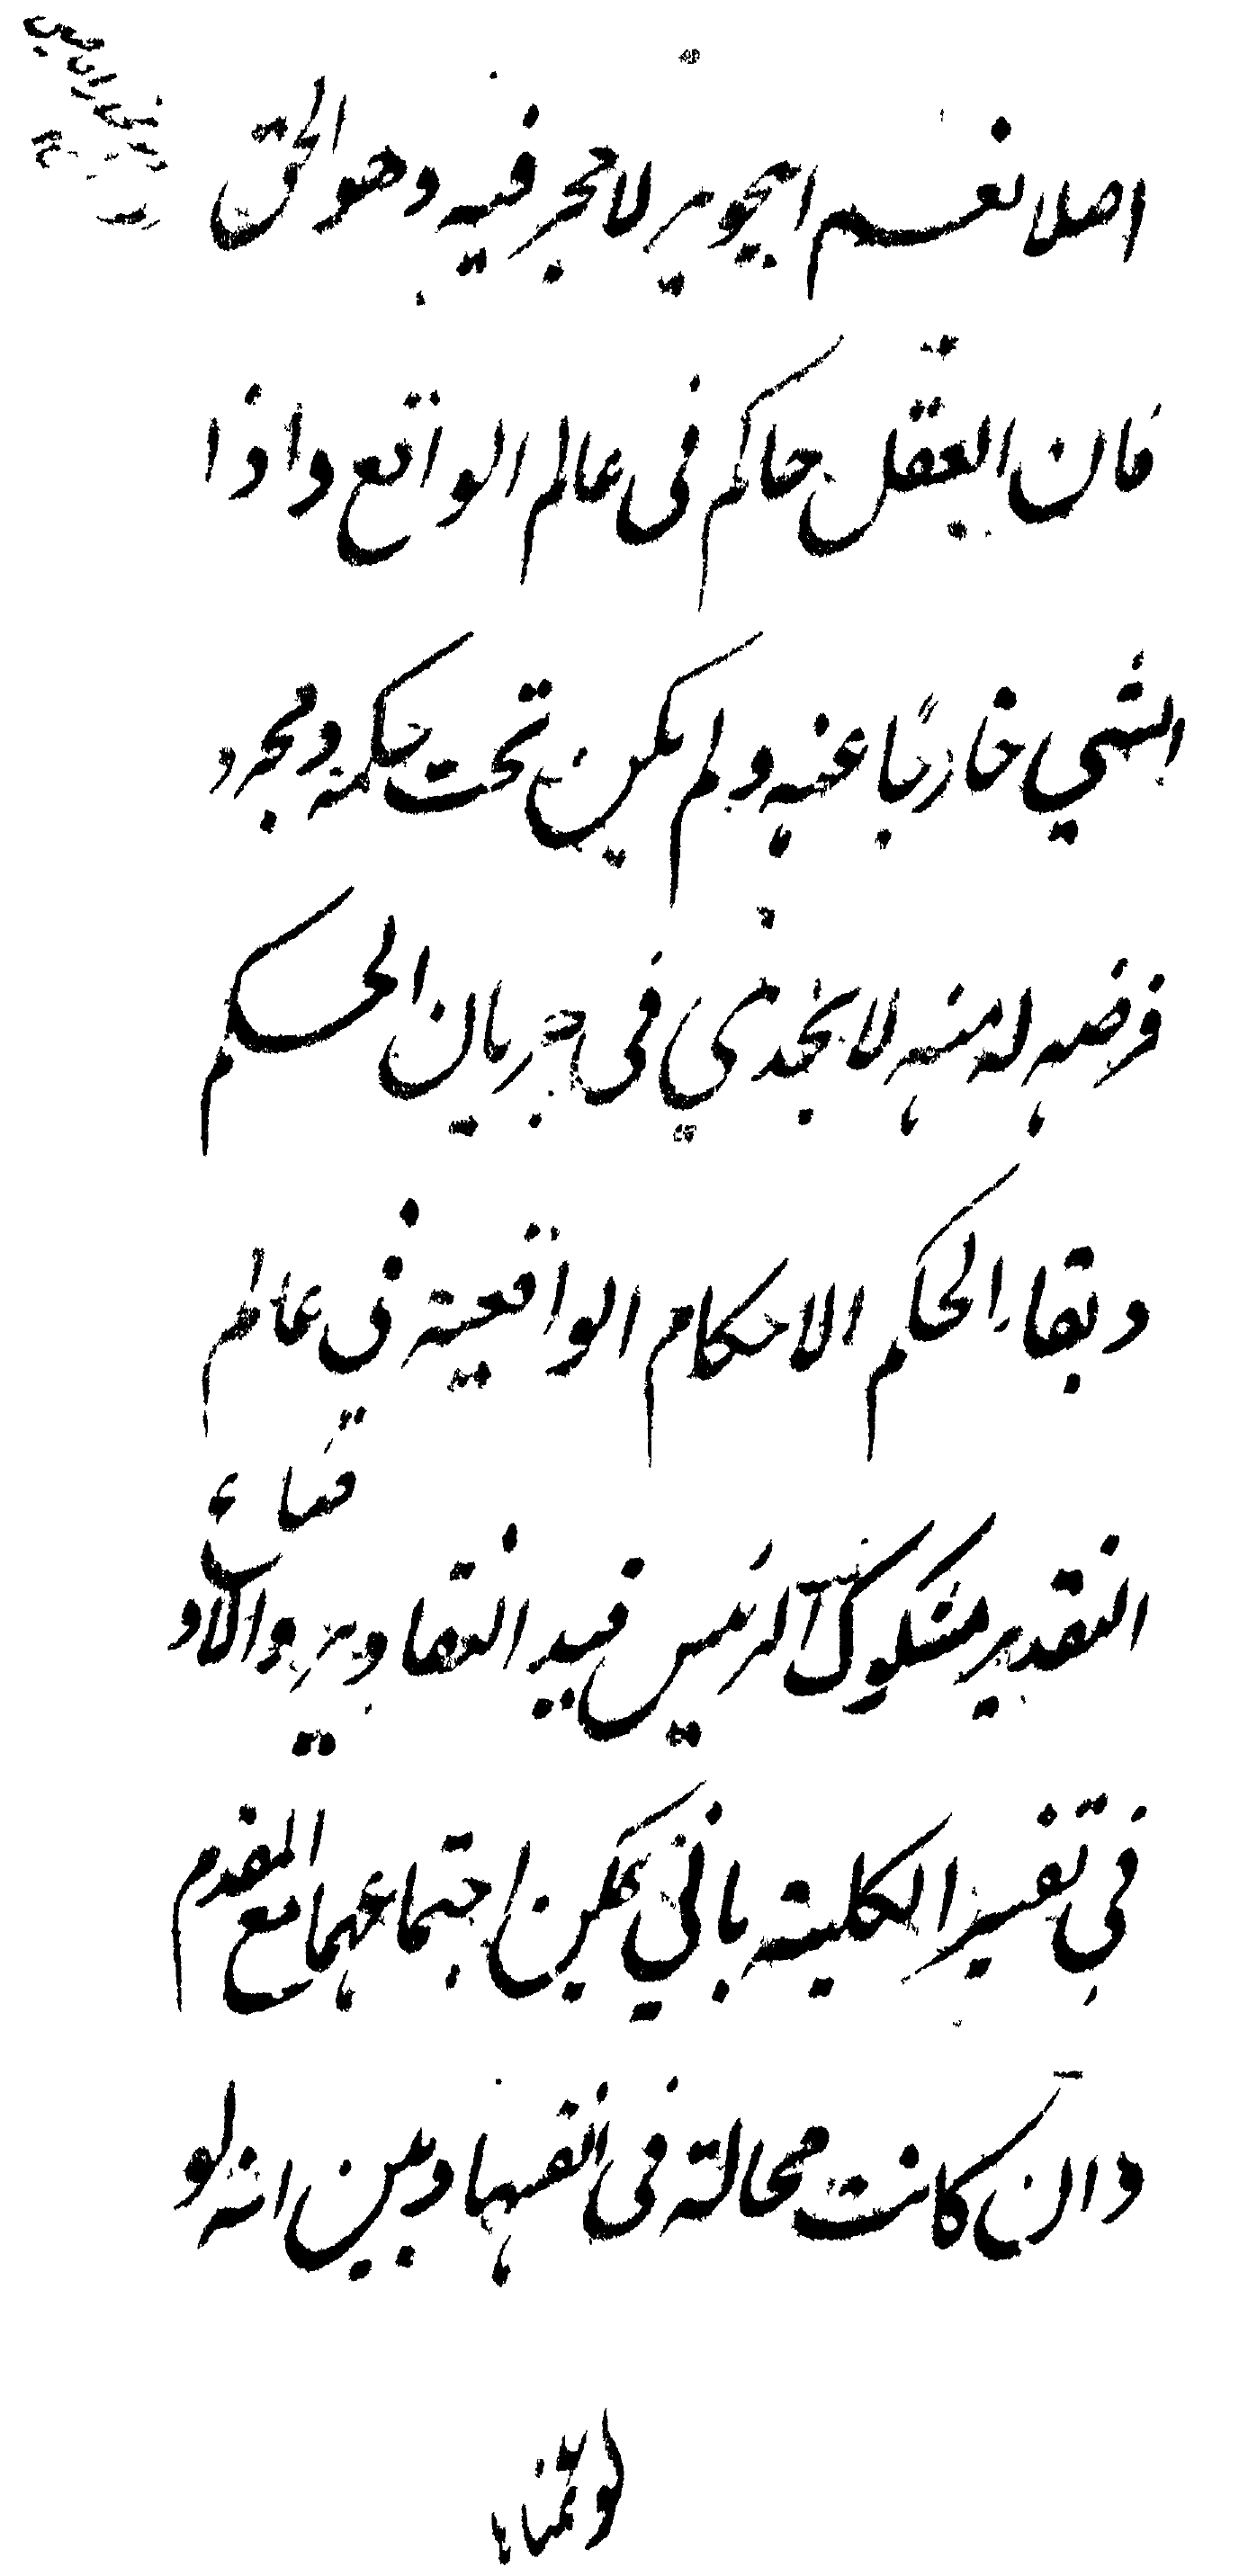 اصلا نعم التجويز لا حجر فيه وهو الحق
فان العقل حاكم فى عالم الواقع واذا
الشي خارجًا عنه ولم يكن تحت حكمه ومجرد
فرضه له منه لا يجدي فى جريان الحكم
وبقاء الحكم الاحكام الواقعية في عالم
التقدير مشكوك ليس فيه التقادير والاو
ضاع
في تفسير الكلية بالتي يمكن اجتماعهما مع المقدم
وان كانت محالة في انفسها وبين انه لو
لو عممنا